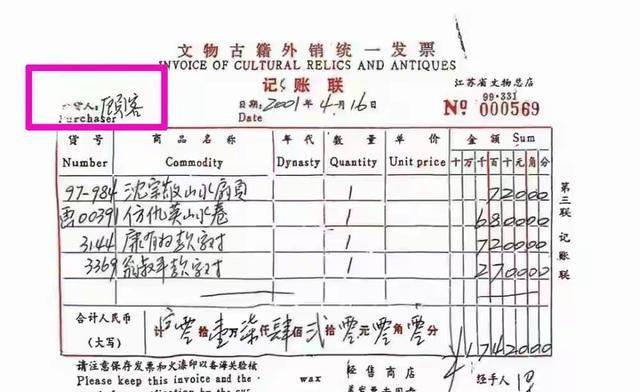 文物古籍外销统一发票
INVOICE OF CULTURAL RELICS AND ANTIQUES
记账联
江苏省文物总店
99·331
货人: 顾客
Purchaser
日期: 2001年4月16
Date
№ 000569
货号 商品名称 年代 数量 单价 金额 Sum
Number Commodity Dynasty Quantity Unit price 十万千百十元角分
97-984 沈宗敬山水扇頁 1 72000
00391 仿仇英山水卷 1 680000
3144 康有为款字对 1 720000
3369 翁叔平款字对 1 270000
合计人民币
(大写)
计 零拾壹万柒仟肆佰贰拾零元零角零分
¥1742000
第三联 记账联
请注意保存发票和火漆印以备海关验核
Please keep this invoice and the
wax
经售商店
经手人